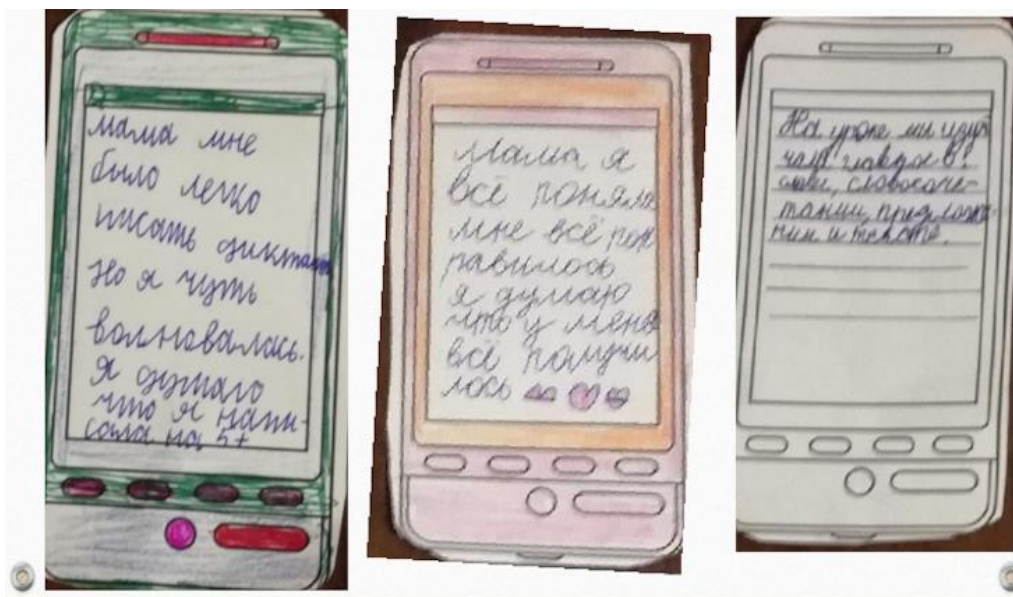 мама мне
было легко
писать диктант
Но я чуть
волновалась.
Я думаю
что я напи-
сала на 5+
Мама я
всё поняла
мне всё пон
равилось
я думаю
что у меня
всё получи
лось
На уроке ми изу
чали главное в
слове, словосоче-
тании, предложе
нии и тексте.